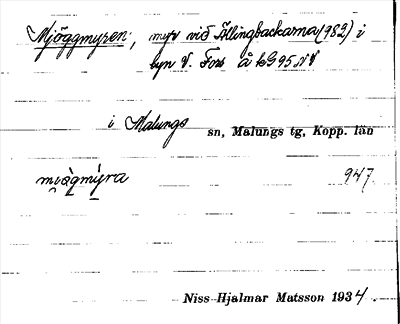 Mjöggmyren, myr vid Ällingbackarna (982) i
byn V. Fors å kG95NV
i Malungs sn, Malungs tg, Kopp. län
mi̯ògmýra 947.
Niss Hjalmar Matsson 1934.